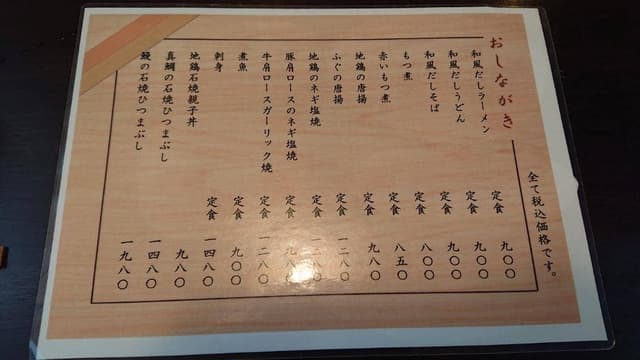 おしながき
和風だしラーメン 定食 九〇〇
和風だしうどん 定食 九〇〇
和風だしそば 定食 九〇〇
もつ煮 定食 八〇〇
赤いもつ煮 定食 八五〇
地鶏の唐揚 定食 九八〇
ふぐの唐揚 定食 一二八〇
地鶏のネギ塩焼 定食
豚肩ロースのネギ塩焼 定食 九八〇
牛肩ロースガーリック焼 定食 一二八〇
煮魚 定食 九〇〇
刺身 定食 一四八〇
地鶏石焼親子丼 九八〇
真鯛の石焼ひつまぶし 一四八〇
鰻の石焼ひつまぶし 一九八〇
全て税込価格です。